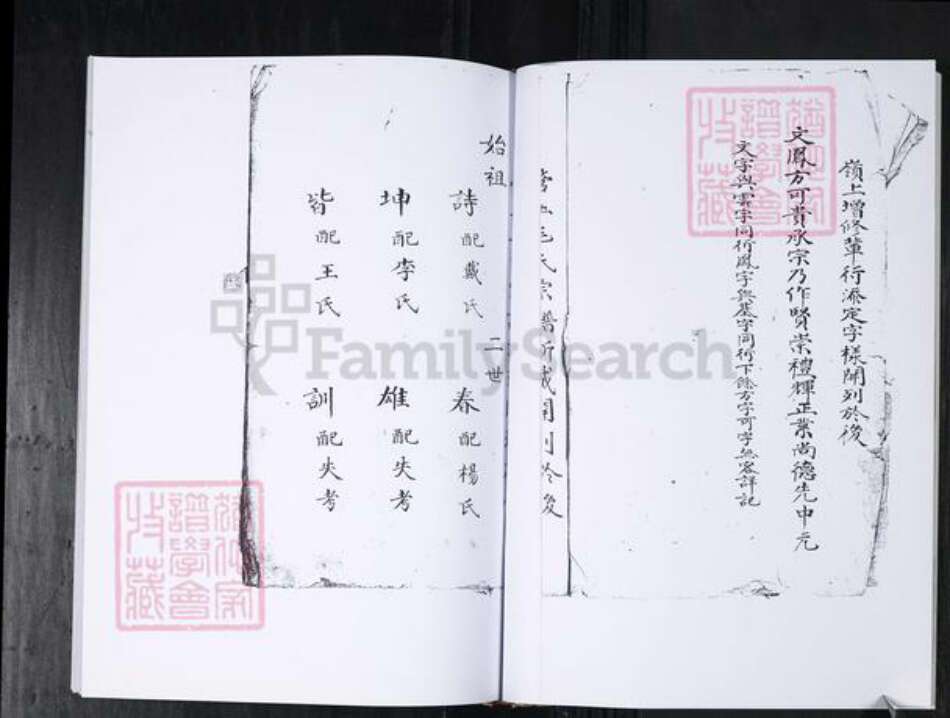 嶺上增修輩行派定字樣開列於後
文鳳方可貴承宗乃作賢崇禮輝正業尚德先中元
文字與雲字同行鳳字與基字同行下餘方字可字無容詳記
毛氏宗譜新成開列於後
始祖
二世
詩 配戴氏
春 配楊氏
坤 配李氏
雄 配失考
皆 配王氏
訓 配失考
譜學會收藏
譜學會收藏
FamilySearch